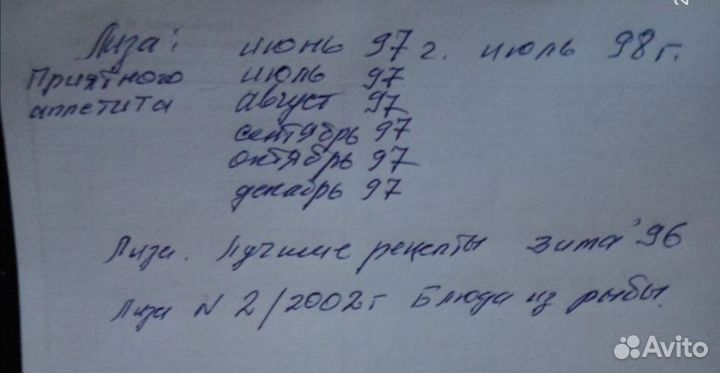 Лиза: июнь 97 г. июль 98 г.
Приятного июль 97
аппетита август 97
сентябрь 97
октябрь 97
декабрь 97
Лиза. Лучшие рецепты зима '96
Лиза N 2/2002г Блюда из рыбы.
Avito